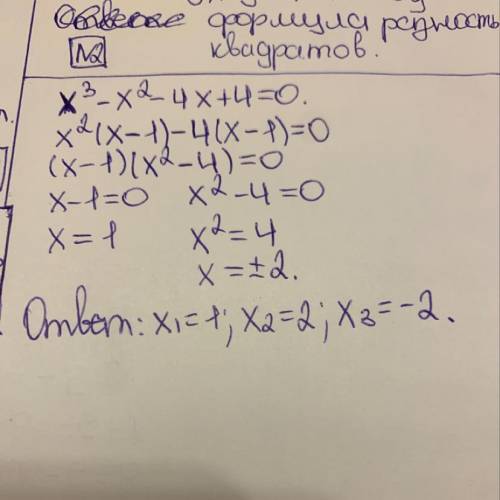 формула разность
№2 квадратов.
x³-x²-4x+4=0.
x²(x-1)-4(x-1)=0
(x-1)(x²-4)=0
x-1=0 x²-4=0
x=1 x²=4
x=±2.
Ответ: x₁=1; x₂=2; x₃=-2.